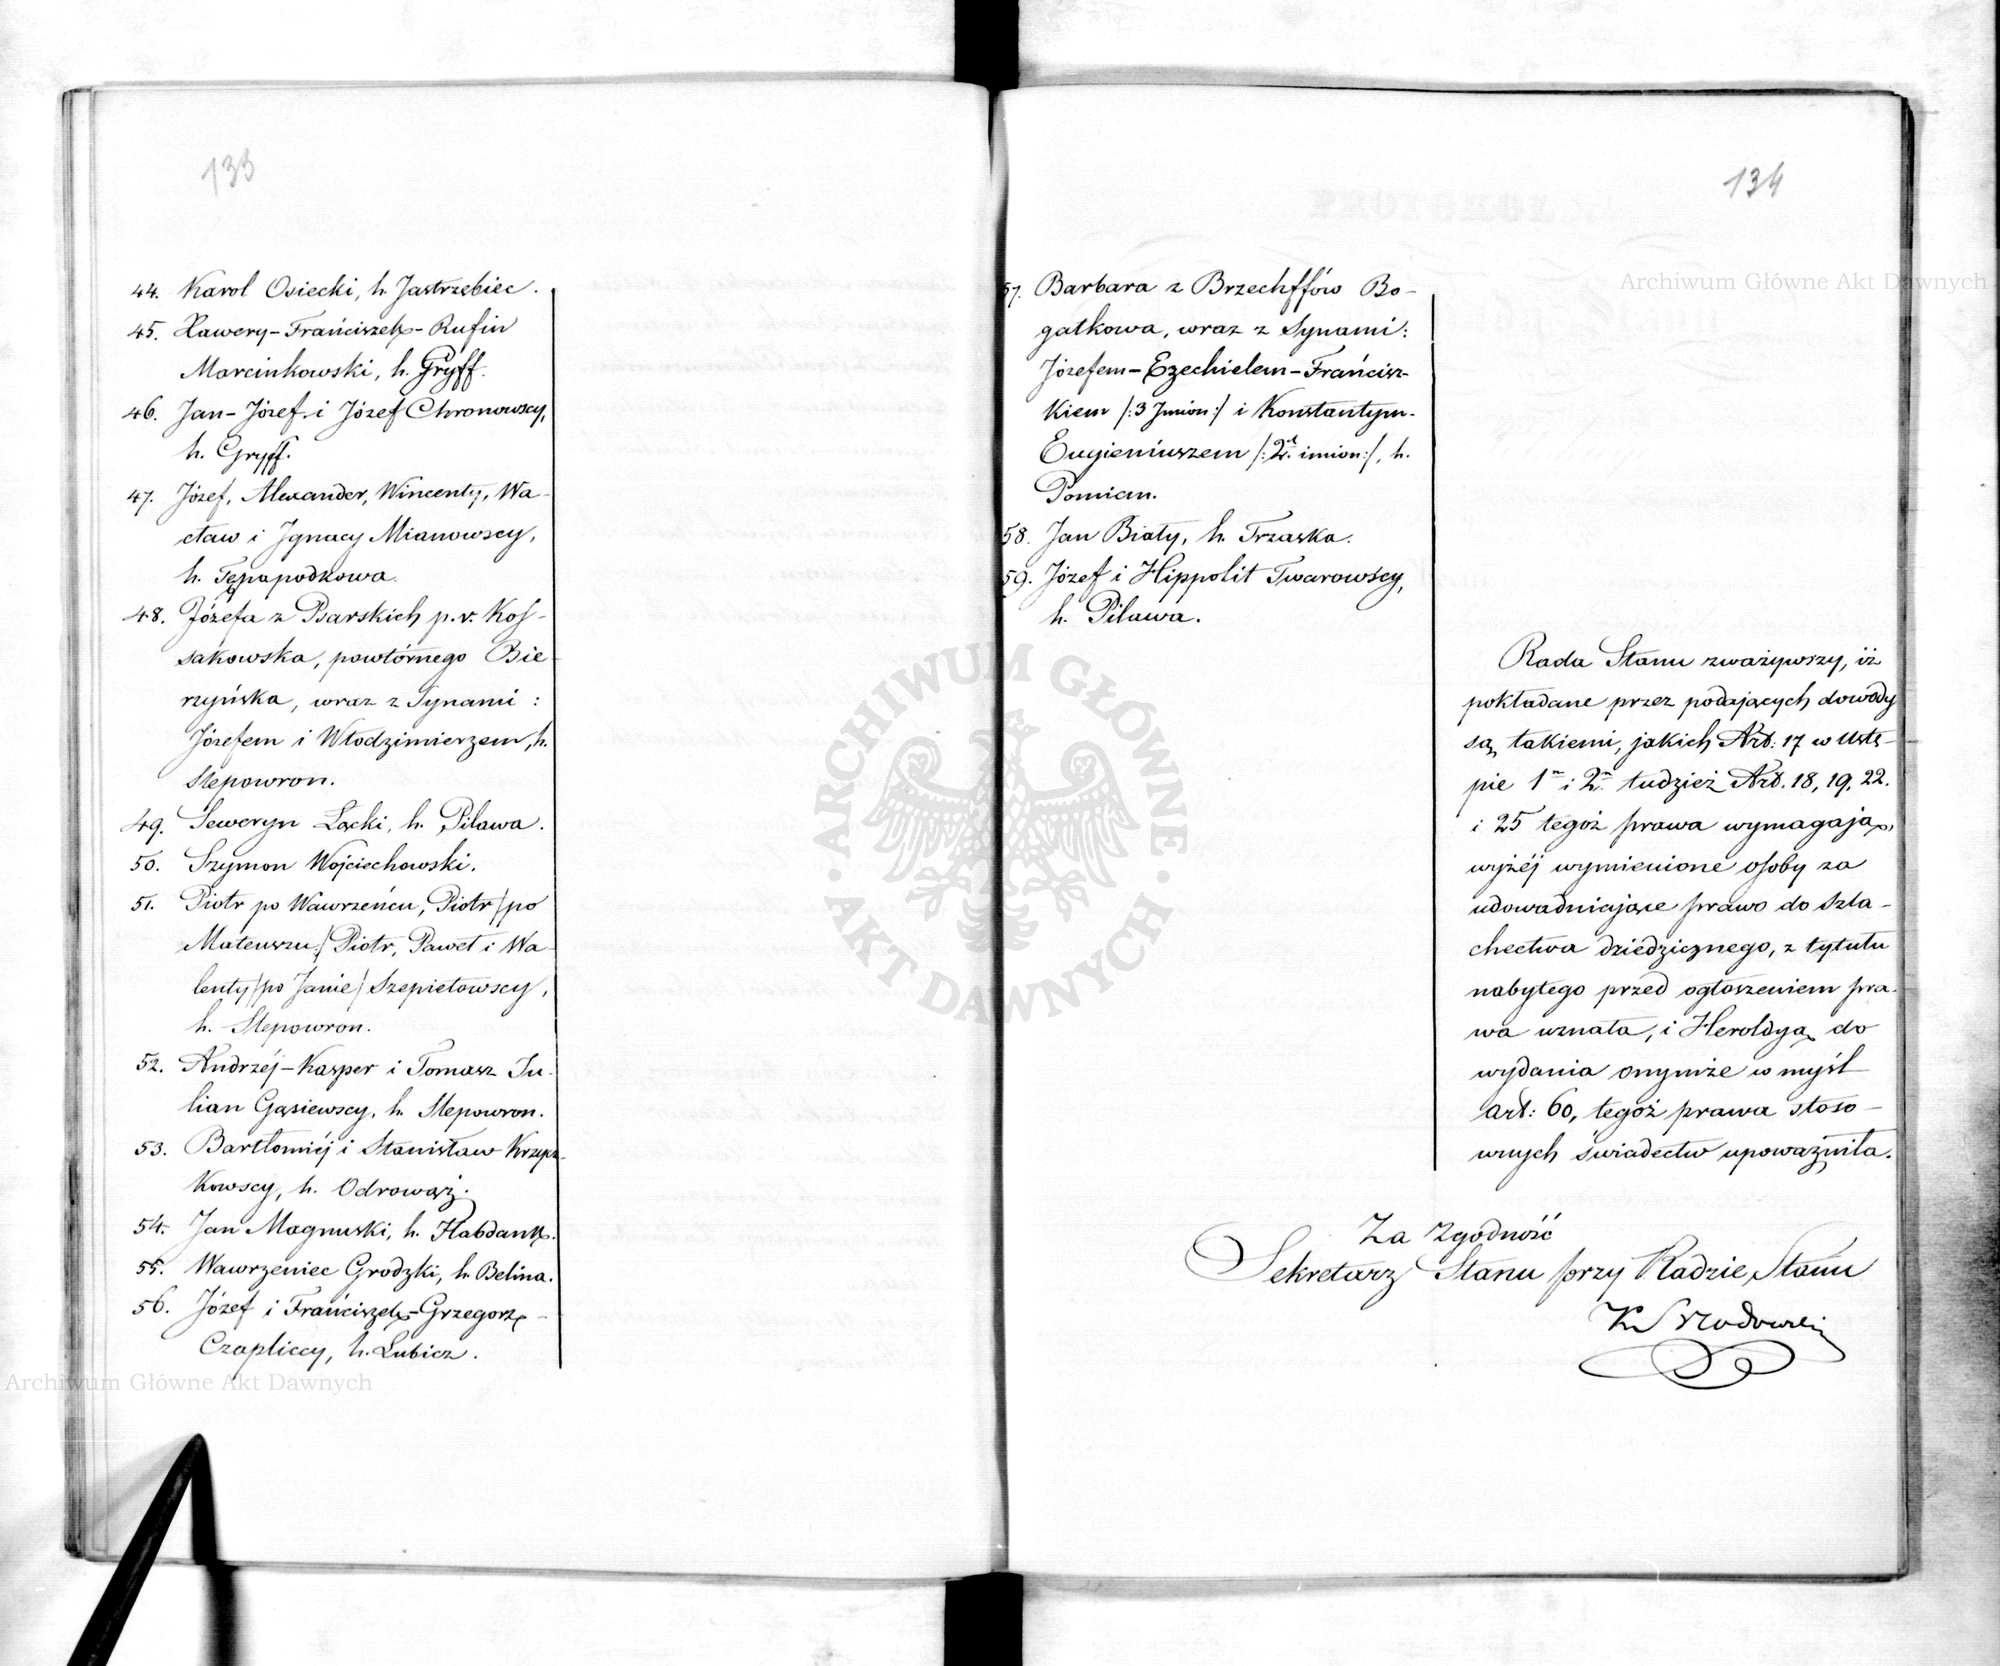 133
44. Karol Osiecki, h. Jastrzębiec.
45. Xawery-Frańciszek-Rufin
Marcinkowski, h. Gryff.
46. Jan-Józef i Józef Chronowscy,
h. Gryff.
47. Józef, Alexander, Wincenty, Wa-
cław i Ignacy Mianowscy,
h. Tępapodkowa.
48. Józefa z Psarskich p. v. Kos-
sakowska, powtórnego Bie-
rzyńska, wraz z Synami:
Józefem i Włodzimierzem, h.
Slepowron.
49. Seweryn Łącki, h. Pilawa.
50. Szymon Wojciechowski.
51. Piotr po Wawrzeńcu, Piotr /po
Mateuszu:/ Piotr, Paweł i Wa-
lenty /po Janie/ Szepietowscy,
h. Slepowron.
52. Andrzéj-Kasper i Tomasz Ju-
lian Gąsiewscy, h. Slepowron.
53. Bartłomiéj i Stanisław Krzycz-
kowscy, h. Odrowąż.
54. Jan Magnuski, h. Habdank.
55. Wawrzeniec Grodzki, h. Belina.
56. Józef i Frańciszek-Grzegorz-
Czapliccy, h. Lubicz.
134
57. Barbara z Brzechffów Bo-
gatkowa, wraz z Synami:
Józefem-Ezechielem-Frańcisz-
kiem /:3 Imion:/ i Konstantym-
Eugieniuszem /:2ch imion:/, h.
Pomian.
58. Jan Biały, h. Trzaska.
59. Józef i Hippolit Twarowscy,
h. Pilawa.
Rada Stanu zważywszy, iż
pokładane przez podających dowody
są takiemi, jakich Art: 17 w Ustę-
pie 1m i 2m tudzież Art. 18, 19, 22.
i 25 tegoż prawa wymagają,
wyżéj wymienione osoby za
udowadniające prawo do Szla-
chectwa dziedzicznego, z tytułu
nabytego przed ogłoszeniem pra-
wa uznała, i Heroldyą do
wydania onymże w myśl
art: 60, tegoż prawa stoso-
wnych świadectw upoważniła.
Za Zgodność
Sekretarz Stanu przy Radzie Stanu
Archiwum Główne Akt Dawnych
Archiwum Główne Akt Dawnych
ARCHIWUM GŁÓWNE
AKT DAWNYCH